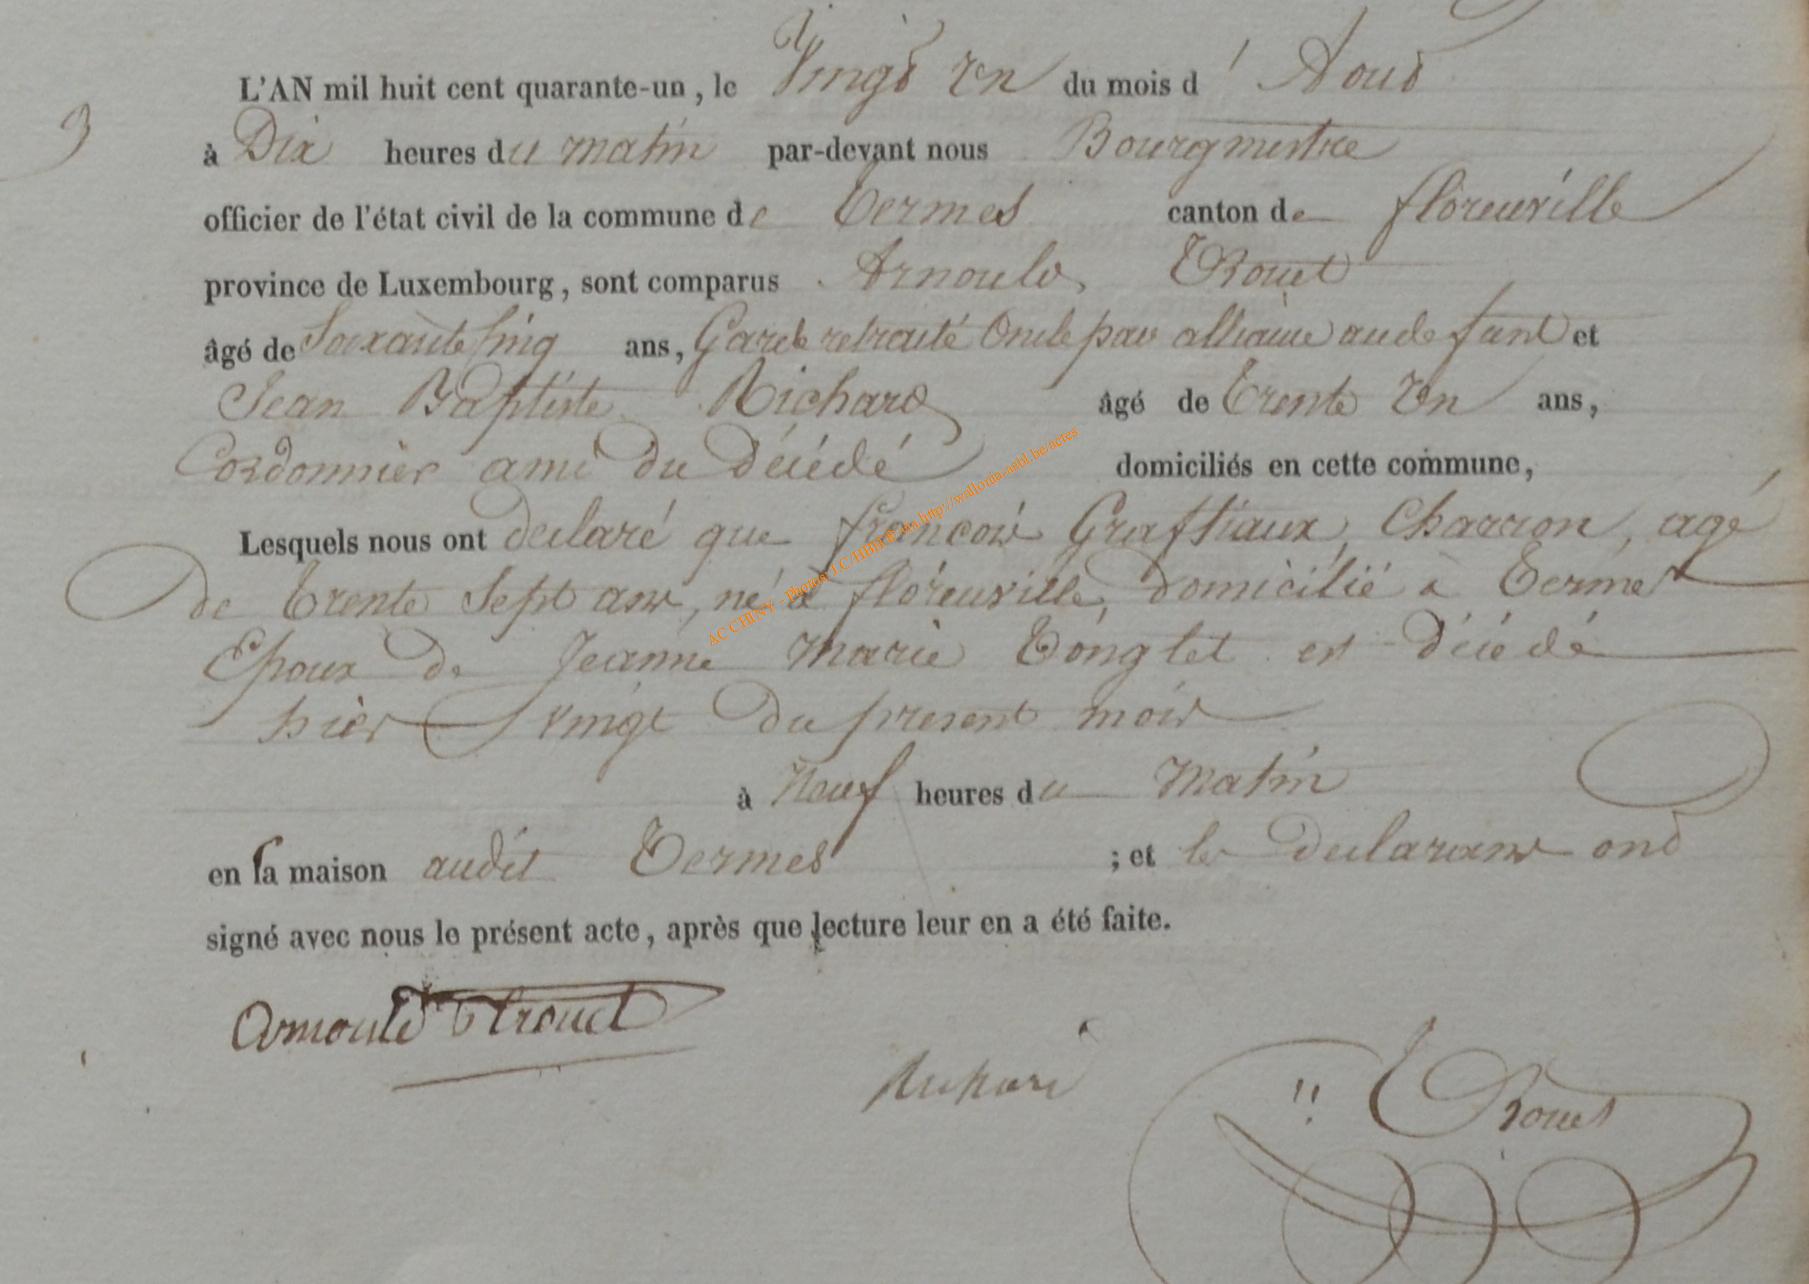 L'AN mil huit cent quarante-un, le Vingt Un du mois d'Aout
9
à Dix heures du matin par-devant nous Bourgmestre
officier de l'état civil de la commune de Termes canton de florenville
province de Luxembourg, sont comparus Arnould Trouet
âgé de Soixante Cinq ans, Garde retraité Oncle par alliance au defunt et
Jean Baptiste Richard âgé de Trente Un ans,
Cordonnier ami du Décédé domiciliés en cette commune,
Lesquels nous ont declaré que françois Graftiaux, Charron, agé
de Trente Sept ans, né à florenville, domicilié à Termes
Epoux de Jeanne Marie Tonglet est décédé
hier vingt du present mois
à Neuf heures du Matin
en sa maison audit Termes ; et les Declarans ont
signé avec nous le présent acte, après que lecture leur en a été faite.
Arnould trouet
Richard
Trouet
AC CHINY - Photos: J.C. http://wallonia-asbl.be/actes